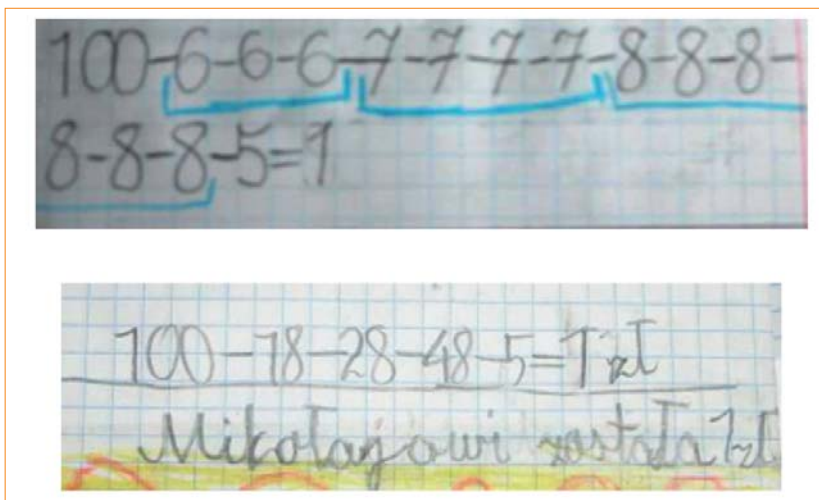 100-6-6-6-7-7-7-7-8-8-8-
8-8-8-5=1
100-18-28-48-5=1 zł
Mikołajowi została 1 zł